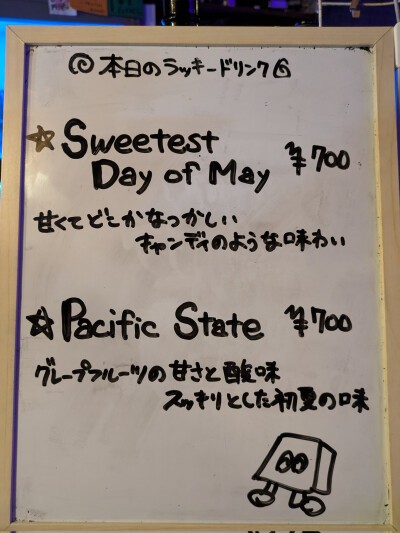 本日のラッキードリンク
☆ Sweetest ¥700
Day of May
甘くてどこかなつかしい
キャンディのような味わい
☆ Pacific State ¥700
グレープフルーツの甘さと酸味
スッキリとした初夏の味